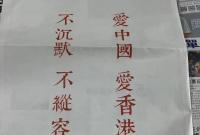 愛中國 愛香港
不沉默 不縱容
單